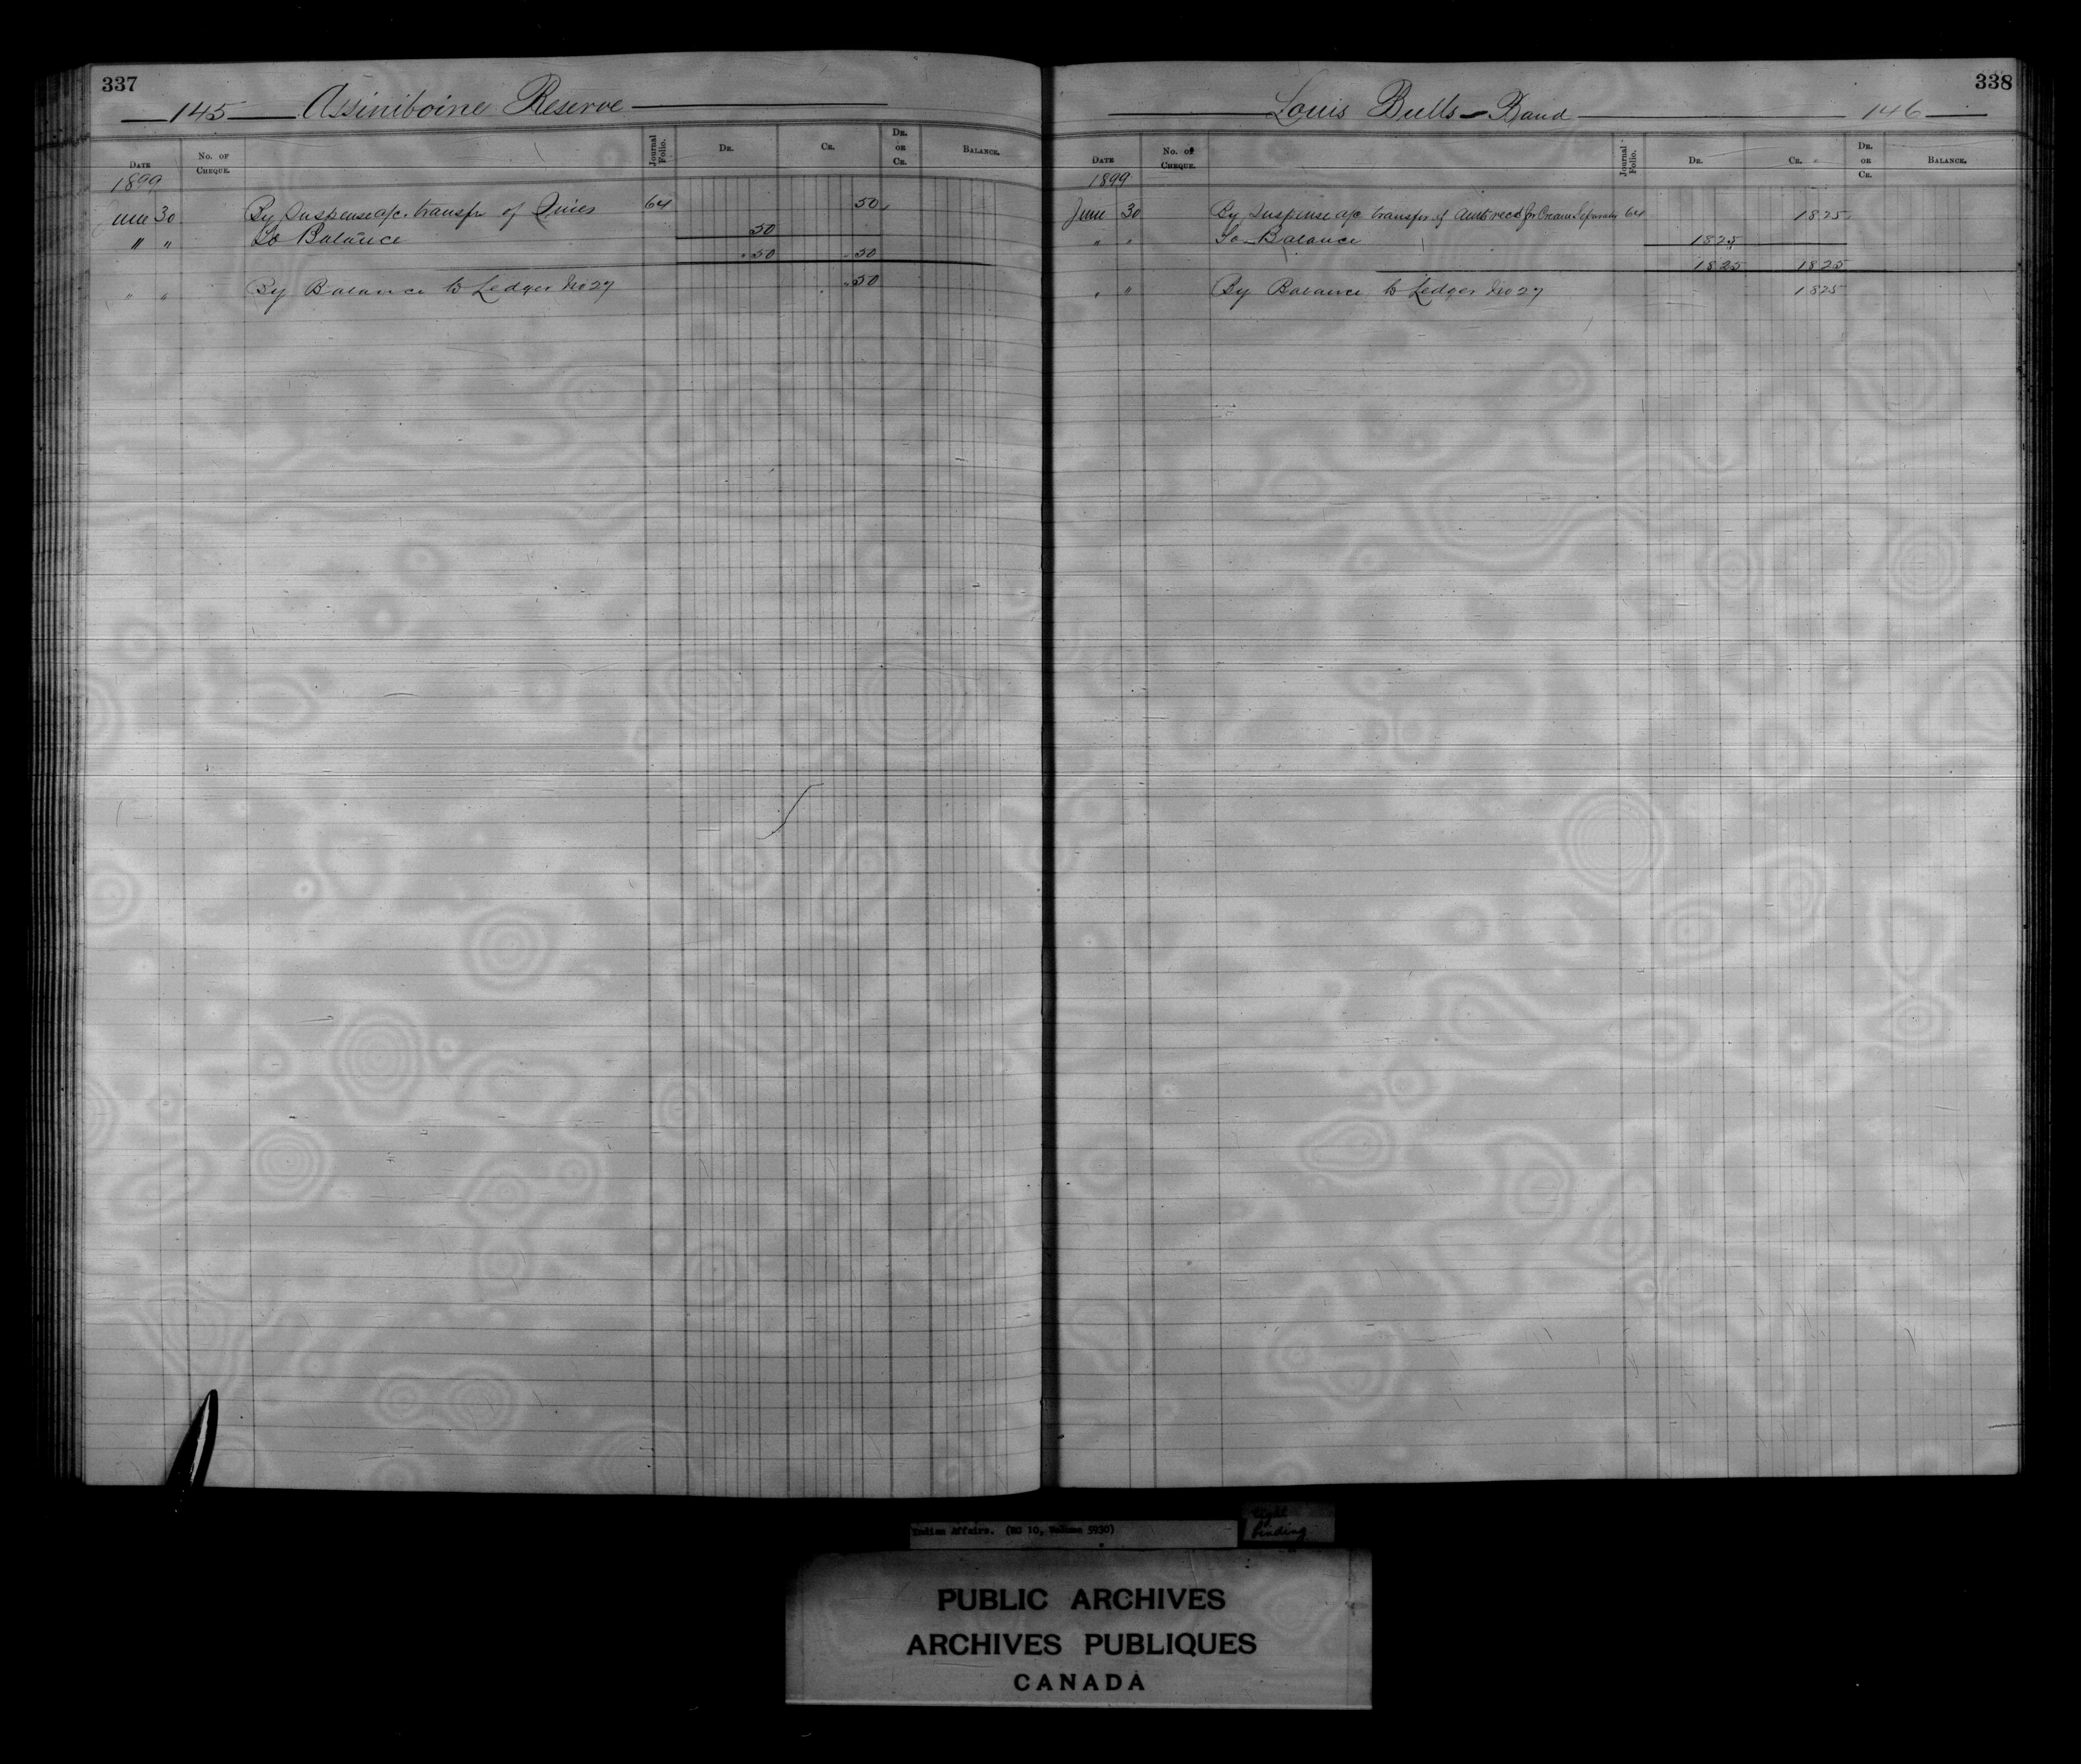 337
145 Assiniboine Reserve
Date No. of Cheque. Journal Folio. Dr. Cr. Dr. or Cr. Balance.
1899
June 30 By Suspense a/c. transfr of 64 50
" " To Balance 50
50 50
" " By Balance to Ledger No 27 50
338
Louis Bulls Band 146
Date No. of Cheque. Journal Folio. Dr. Cr. Dr. or Cr. Balance.
1899
June 30 By Suspense a/c transfer of Amt recd for Cream Separator 64 1825
" " To Balance 1825
1825 1825
" " By Balance to Ledger No 27 1825
Indian Affairs. (RG 10, Volume 5930)
tight
binding
PUBLIC ARCHIVES
ARCHIVES PUBLIQUES
CANADA